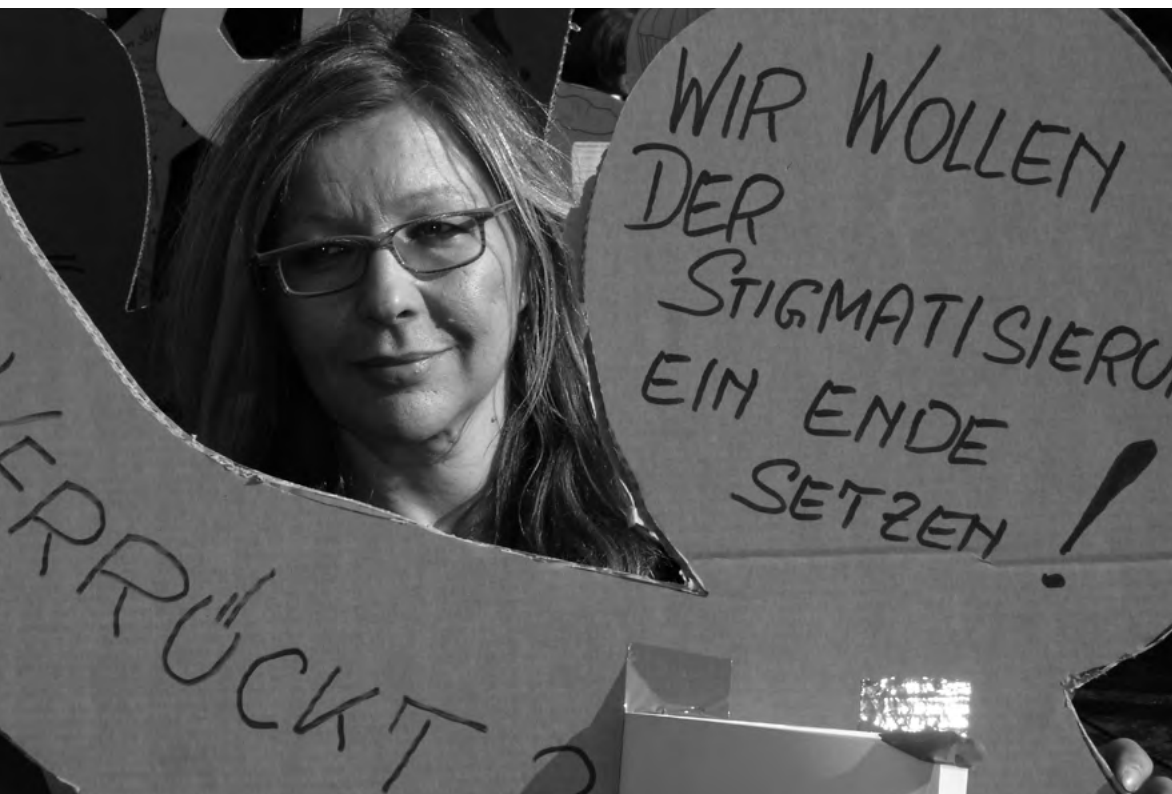 WIR WOLLEN
DER
STIGMATISIERU
EIN ENDE
SETZEN!
VERRÜCKT?